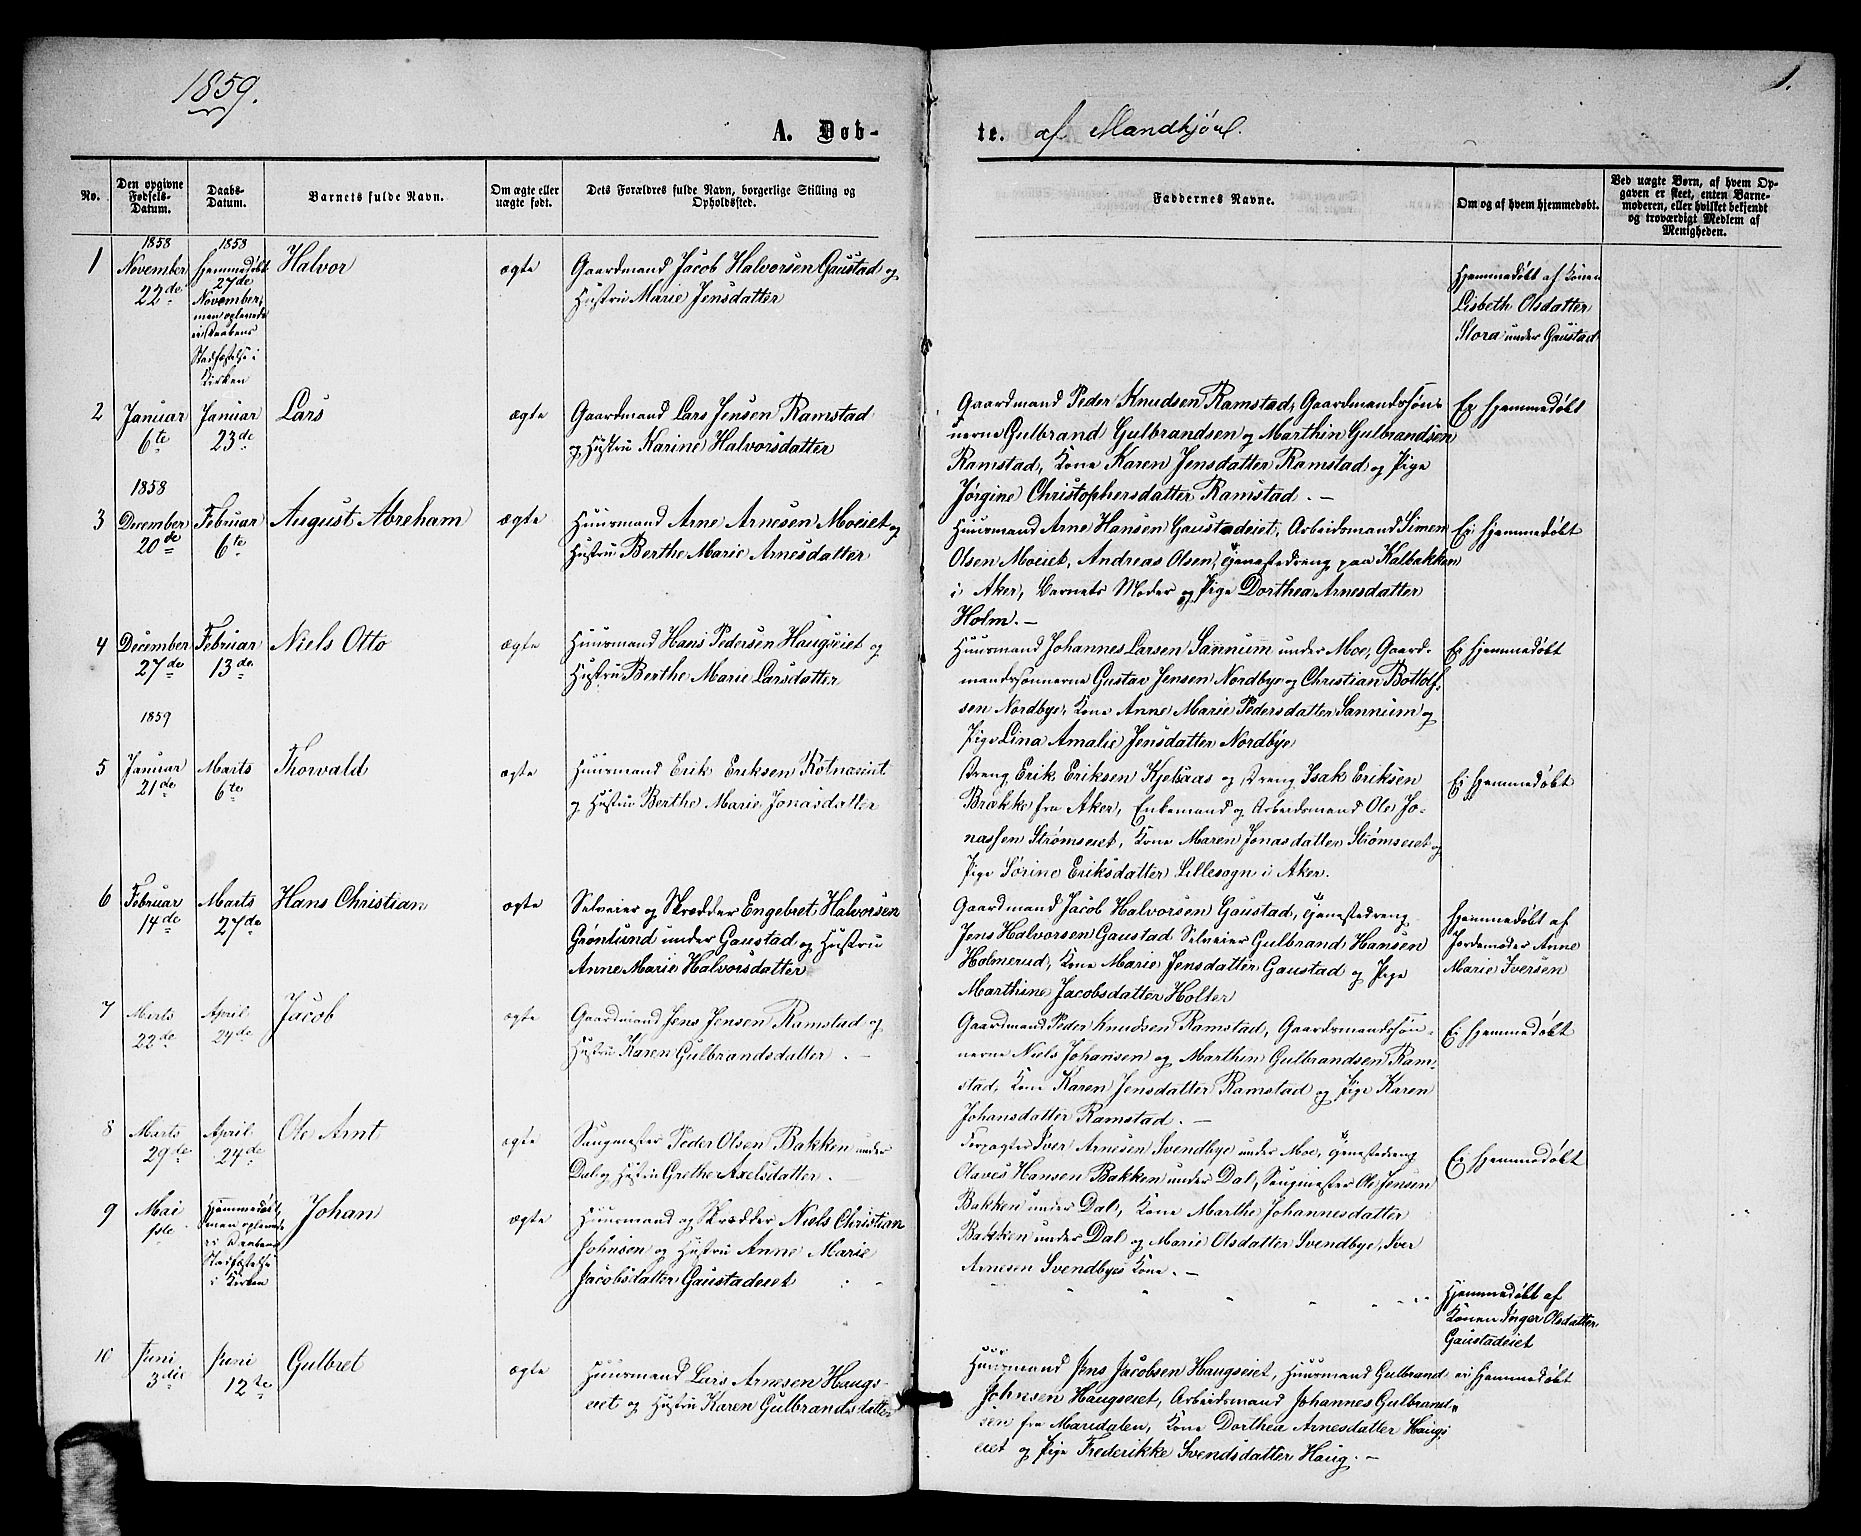 1859.
1.
A. Døb-
te. af Mandkjøn.
No.
Den opgivne Fødsels-Datum.
Daabs-Datum.
Barnets fulde Navn.
Om ægte eller uægte født.
Dets Forældres fulde Navn, borgerlige Stilling og Opholdssted.
Faddernes Navne.
Om og af hvem hjemmedøbt.
Ved uægte Børn, af hvem Op-
gaven er skeet, enten Barne-
moderen, eller hvilket bekjendt
og troværdigt Medlem af
Menigheden.
1
1858
November
22de
1858
hjemmedøbt
27de
November,
men oplevede
ei Daabens
Stadfæstelse i
Kirken
Halvor
ægte
Gaardmand Jacob Halvorsen Gaustad og
Hustru Marie Jensdatter
Hjemmedøbt af Konen
Lisbeth Olsdatter
Stora under Gaustad
2
Januar
6te
Januar
23de
Lars
ægte
Gaardmand Lars Jensen Ramstad
og Hustru Karine Halvorsdatter
Gaardmand Peder Knudsen Ramstad, Gaardmandssøn-
nerne Gulbrand Gulbrandsen og Marthin Gulbrandsen
Ramstad, Kone Karen Jensdatter Ramstad og Pige
Jørgine Christophersdatter Ramstad. —
Ei hjemmedøbt
3
1858
December
20de
Februar
6te
August Abreham
ægte
Huusmand Arne Arnesen Moeiet og
Hustru Berthe Marie Arnesdatter
Huusmand Arne Hansen Gaustadeiet, Arbeidsmand Simen
Olsen Moeiet, Andreas Olsen, Tjenestedreng paa Kalbakken
i Aker, Barnets Moder og Pige Dorthea Arnesdatter
Holm. —
Ei hjemmedøbt
4
December
27de
Februar
13de
Niels Otto
ægte
Huusmand Hans Pedersen Haugseiet og
Hustru Berthe Marie Larsdatter
Huusmand Johannes Larsen Sannum under Moe, Gaard-
mandssønnerne Gustav Jensen Nordbye og Christian Bottolf-
sen Nordbye, Kone Anne Marie Pedersdatter Sannum og
Pige Lina Amalie Jensdatter Nordbye
Ei hjemmedøbt
5
1859
Januar
21de
Marts
6te
Thorvald
ægte
Huusmand Erik Eriksen
og Hustru Berthe Marie Jonasdatter
Dreng Erik Eriksen Kjelsaas og Dreng Isak Eriksen
Brække fra Aker, Enkemand og Arbeidsmand Ole Jo-
nassen Strømseiet, Kone Maren Jonasdatter Strømseiet og
Pige Sørine Eriksdatter Lillesogn i Aker.
Ei hjemmedøbt
6
Februar
14de
Marts
27de
Hans Christian
ægte
Selveier og Skrædder Engebret Halvorsen
Grønlund under Gaustad og Hustru
Anne Marie Halvorsdatter
Gaardmand Jacob Halvorsen Gaustad, Tjenestedreng
Jens Halvorsen Gaustad Selveier Gulbrand Hansen
Holmerud, Kone Marie Jensdatter Gaustad og Pige
Marthine Jacobsdatter Holter
Hjemmedøbt af
Jordemoder Anne
Marie Iversen
7
Marts
22de
April
24de
Jacob
ægte
Gaardmand Jens Jensen Ramstad og
Hustru Karen Gulbrandsdatter. —
Gaardmand Peder Knudsen Ramstad, Gaardmandssøn-
nerne Niels Johansen og Marthin Gulbrandsen Ram-
stad, Kone Karen Jensdatter Ramstad og Pige Karen
Johansdatter Ramstad. —
Ei hjemmedøbt
8
Marts
29de
April
24de
Ole Arnt
ægte
Saugmester Peder Olsen Bakken under
Dal og Hustru Grethe Axelsdatter. —
Forpagter Iver Arnesen Svendbye under Moe, Tjenestedreng
Olaves Hansen Bakken under Dal, Saugmester Ole Jensen
Bakken under Dal, Kone Marthe Johannesdatter
Bakken under Dal og Marie Olsdatter Svendbye, Iver
Arnesen Svendbyes Kone. —
Ei hjemmedøbt
9
Mai
1ste
Hjemmedøbt,
men oplevede
ei Daabens
Stadfæstelse
i Kirken
Johan
ægte
Huusmand og Skrædder Niels Christian
Johnsen og Hustru Anne Marie
Jacobsdatter Gaustadeiet
Hjemmedøbt af
Konen Inger Olsdatter
Gaustadeiet
10
Juni
3die
Juni
12te
Gulbret
ægte
Huusmand Lars Arnesen Haugs-
eiet og Hustru Karen Gulbrandsdatter
Huusmand Jens Jacobsen Haugseiet, Huusmand Gulbrand
Johnsen Haugseiet, Arbeidsmand Johannes Gulbrand-
sen fra Maridalen, Kone Dorthea Arnesdatter Haugs
eiet og Pige Frederikke Svendsdatter Haug. —
ei hjemmedøbt